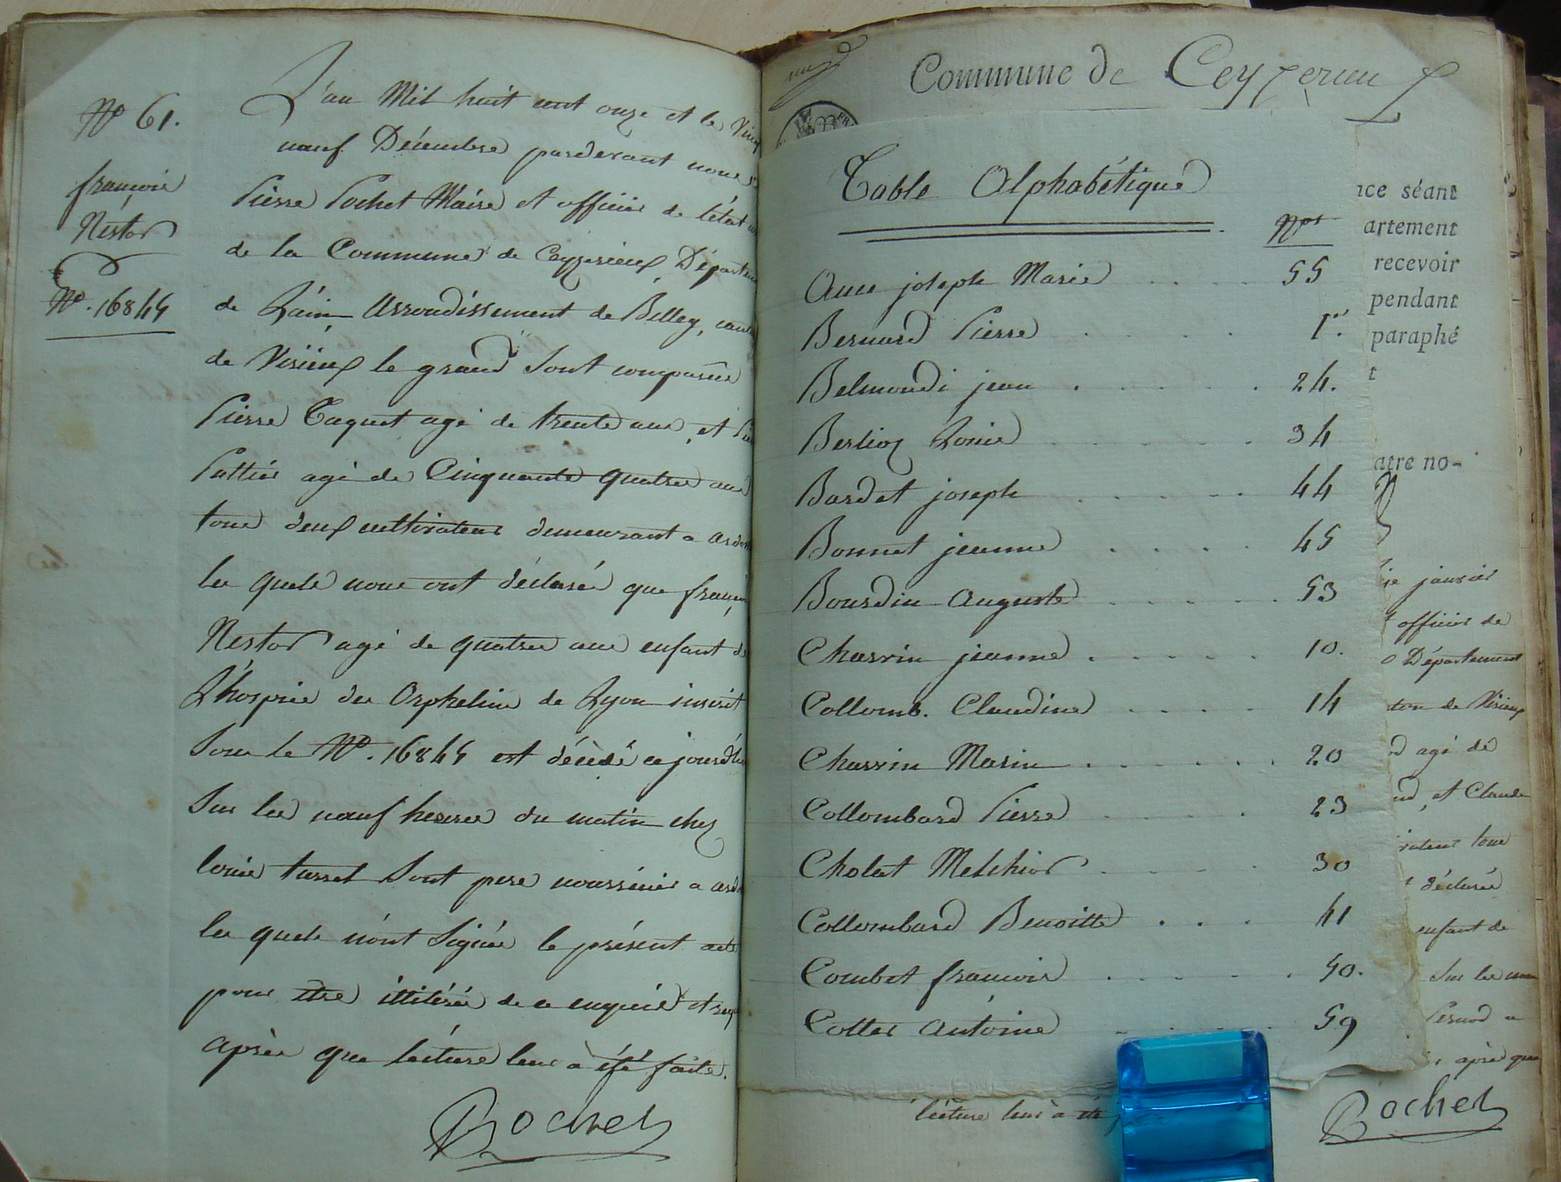 Nº 61.
françois
Nestor
Nº. 16844
L'an Mil huit cent onze et le Vingt
neuf Décembre pardevant nous
Pierre Rochet Maire et officier de l'état
de la Commune de Ceyzerieux, Départ
de L'ain Arrondissement de Belley, can
de Virieux le grand Sont comparus
Pierre Taquet agé de trente ans, et
Pattier agé de Cinquante quatre ans
tous deux cultivateurs demeurant a
les quels nous ont déclaré que françois
Nestor agé de quatre ans enfant de
L'hospice des Orphelins de Lyon inscrit
Sous le Nº. 16844 est décédé ce jourd'hui
Sur les neuf heures du matin chez
Louis Sont pere nourricier a
les quels n'ont Signés le présent acte
pour être illitérés de ce enquis et req
après que lécture leur à été faite.
Rochet
Commune de Ceyzerieu
Table Alphabétique
Nos
Ance joseph Marie . . . . 55
Bernard Pierre . . . . 1er.
Belmondi jean . . . . 24.
Berlioz Louis . . . . 34
Bardet joseph . . . . 44
Bonnet jeanne . . . . 45
Bourdin Auguste . . . . 53
Charvin jeanne . . . . . 10.
Collomb. Claudine . . . . 14
Charvin Marin . . . . . . 20
Collombard Pierre . . . . 23
Cholat Melchior . . . . 30
Collombard Benoitte . . . 41
Combet francois . . . . . 50.
Cottet Antoine . . . . 59
ice séant
artement
recevoir
pendant
paraphé
t
atre no-
janvier
officier de
Département
ton de Virieux
agé de
, et Claude
tous
déclarés
enfant de
Sur les
après que
lécture leur à été
Rochet